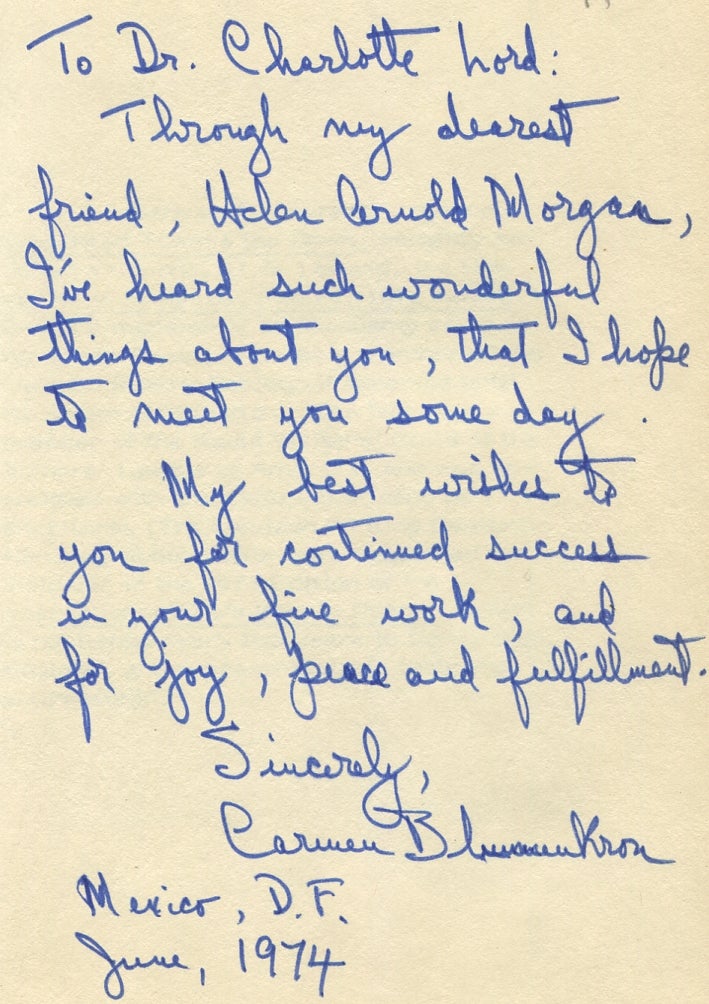 To Dr. Charlotte Lord:
Through my dearest
friend, Helen Arnold Morgan,
I've heard such wonderful
things about you, that I hope
to meet you some day.
My best wishes to
you for continued success
in your fine work, and
for joy, peace and fulfillment.
Sincerely,
Carmen
Mexico, D.F.
June, 1974